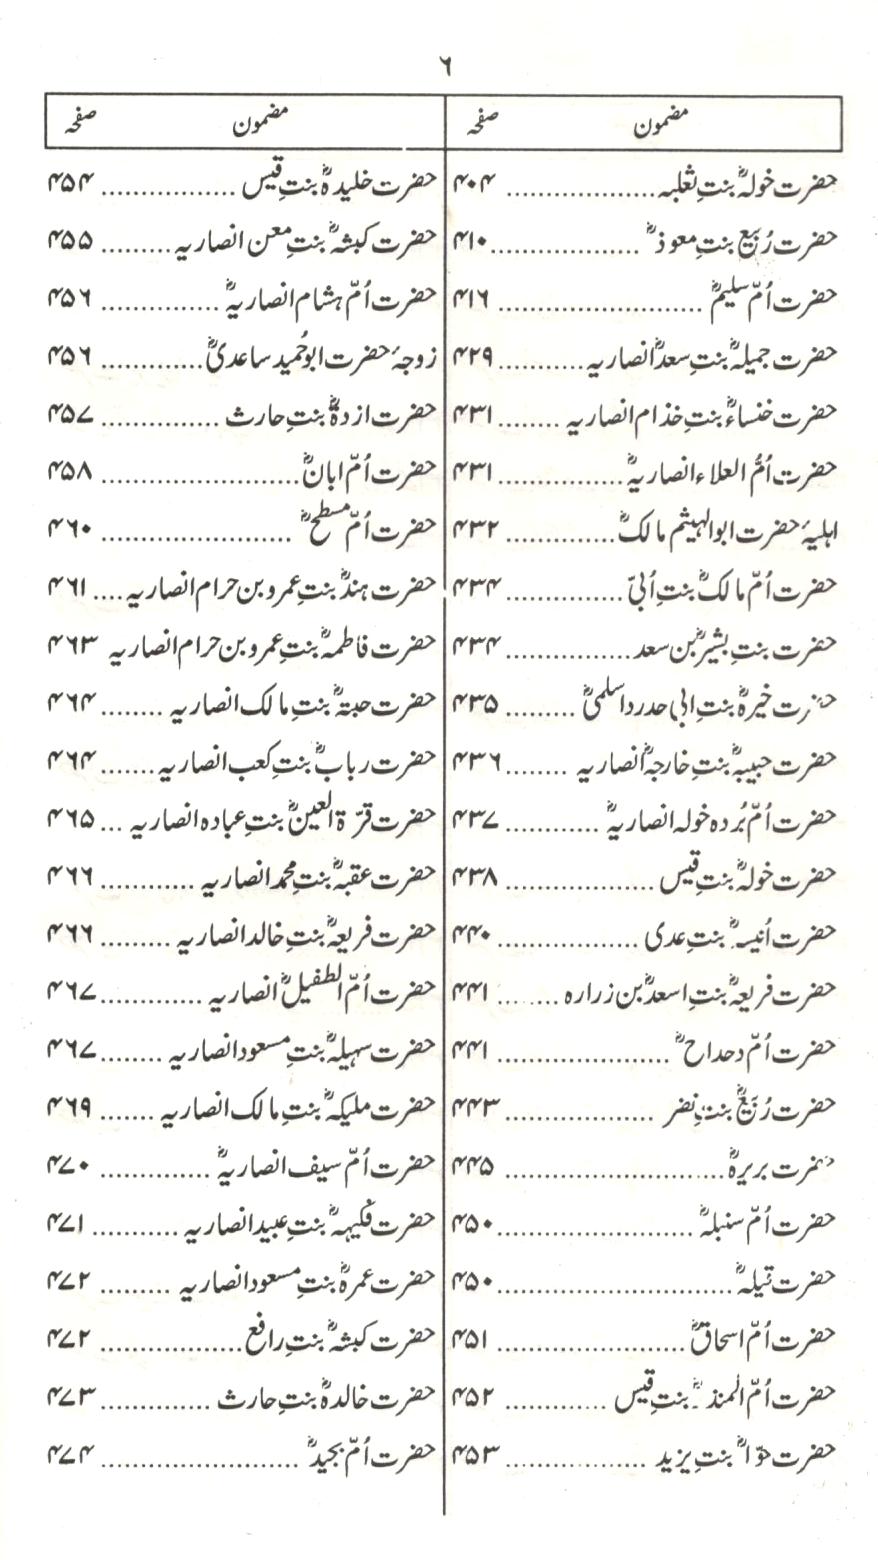 ۶
مضمون صفحہ
حضرت خولہؓ بنتِ ثعلبہ .................. ۴۰۴
حضرت رُبَیّع بنتِ معوذؓ .................. ۴۱۰
حضرت اُمّ سلیمؓ .................. ۴۱۶
حضرت جمیلہؓ بنتِ سعدؓ انصاریہ ........... ۴۲۹
حضرت خنساءؓ بنتِ خذام انصاریہ ........ ۴۳۱
حضرت اُمُّ العلاء انصاریہؓ ............... ۴۳۱
اہلیۂ حضرت ابوالہیثم مالکؓ ............. ۴۳۲
حضرت اُمّ مالکؓ بنتِ اُبیّ .............. ۴۳۴
حضرت بنتِ بشیرؓ بن سعد ............... ۴۳۴
حضرت خیرہؓ بنتِ ابی حدرد اسلمیؓ ......... ۴۳۵
حضرت حبیبہؓ بنتِ خارجہؓ انصاریہ ........ ۴۳۶
حضرت اُمّ بُردہ خولہ انصاریہؓ ............ ۴۳۷
حضرت خولہؓ بنتِ قیس .................. ۴۳۸
حضرت اُنیسہؓ بنتِ عدی ................. ۴۴۰
حضرت فریعہؓ بنتِ اسعدؓ بن زرارہ ........ ۴۴۱
حضرت اُمّ دحداحؓ ..................... ۴۴۱
حضرت رُبَیّعؓ بنتِ نضر .................. ۴۴۳
حضرت بریرہؓ ........................... ۴۴۵
حضرت اُمّ سنبلہؓ ........................ ۴۵۰
حضرت قیلہؓ ............................. ۴۵۰
حضرت اُمّ اسحاقؓ ....................... ۴۵۱
حضرت اُمّ المنذرؓ بنتِ قیس ............ ۴۵۲
حضرت حوّاؓ بنتِ یزید ................. ۴۵۳
مضمون صفحہ
حضرت خلیدہؓ بنتِ قیس ................ ۴۵۴
حضرت کبشہؓ بنتِ معن انصاریہ ......... ۴۵۵
حضرت اُمّ ہشام انصاریہؓ .............. ۴۵۶
زوجۂ حضرت ابوحُمید ساعدیؓ ............ ۴۵۶
حضرت ازدہؓ بنتِ حارث .............. ۴۵۷
حضرت اُمّ ابانؓ ........................ ۴۵۸
حضرت اُمّ مسطحؓ ....................... ۴۶۰
حضرت ہندؓ بنتِ عمرو بن حرام انصاریہ .... ۴۶۱
حضرت فاطمہؓ بنتِ عمرو بن حرام انصاریہ ۴۶۳
حضرت حبتہؓ بنتِ مالک انصاریہ ........ ۴۶۴
حضرت ربابؓ بنتِ کعب انصاریہ ....... ۴۶۴
حضرت قرّۃ العینؓ بنتِ عبادہ انصاریہ ... ۴۶۵
حضرت عقبہؓ بنتِ محمد انصاریہ ............ ۴۶۶
حضرت فریعہؓ بنتِ خالد انصاریہ ......... ۴۶۶
حضرت اُمّ الطفیلؓ انصاریہ ............. ۴۶۷
حضرت سہیلہؓ بنتِ مسعود انصاریہ ........ ۴۶۷
حضرت ملیکہؓ بنتِ مالک انصاریہ ....... ۴۶۹
حضرت اُمّ سیف انصاریہؓ .............. ۴۷۰
حضرت فکیہہؓ بنتِ عبید انصاریہ ........... ۴۷۱
حضرت عمرہؓ بنتِ مسعود انصاریہ ......... ۴۷۲
حضرت کبشہؓ بنتِ رافع .................. ۴۷۲
حضرت خالدہؓ بنتِ حارث .............. ۴۷۳
حضرت اُمّ بجیدؓ ........................ ۴۷۴